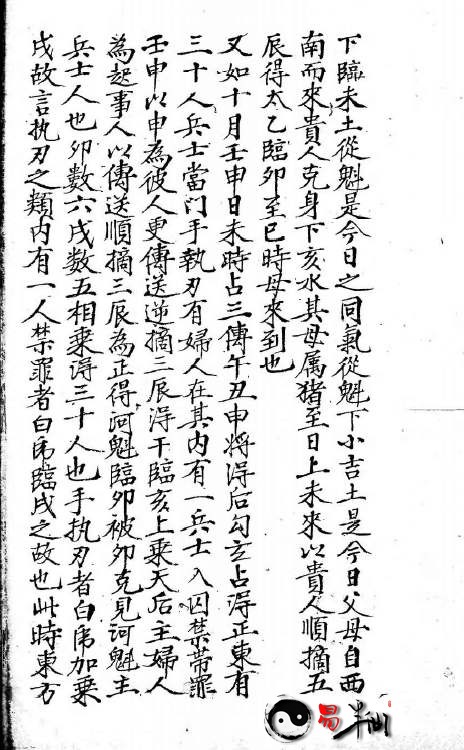 下臨未土從魁是今日之同氣從魁下小吉土是今日父母自西
南而來貴人克身下亥水其母属猪至日上未來以貴人順摘五
辰得太乙臨卯至巳時母來到也
又如十月壬申日未時占三傳午丑申將得后勾玄占得正東有
三十人兵士當门手執刃有婦人在其内有一兵士入囚禁帶罪
壬申以申為彼人更傳送逆摘三辰得干臨亥上乘天后主婦人
為起事人以傳送順摘三辰為正得河魁臨卯被卯克見河魁主
兵士人也卯数六戌数五相乘得三十人也手执刃者白虎加乘
戌故言执刃之類内有一人禁罪者白虎臨戌之故也此時東方
易半仙